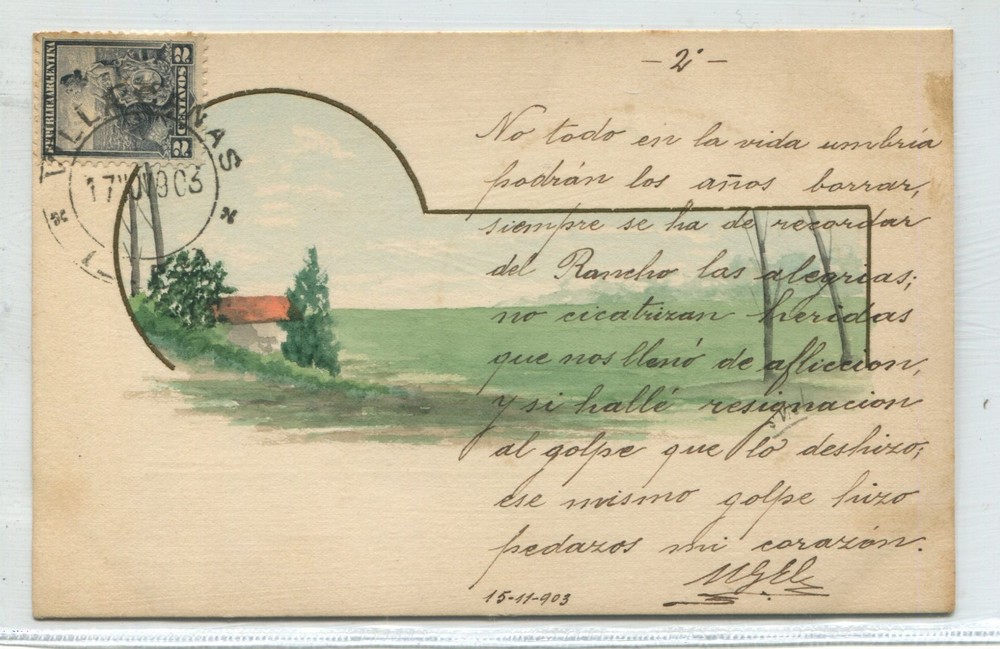 REPUBLICA ARGENTINA
2 CENTAVOS 2
17 NO 903
- 2ª -
No todo en la vida umbría
podrán los años borrar,
siempre se ha de recordar
del Rancho las alegrias;
no cicatrizan heridas
que nos llenó de afliccion,
y si hallé resignacion
al golpe que lo deshizo;
ese mismo golpe hizo
pedazos mi corazón.
15-11-903